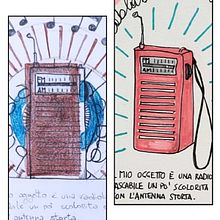 FM
AM
o oggetto è una radiolo
bile un po' scolorita e
antenna storta
FM
AM
MIO OGGETTO È UNA RADIO
ASCABILE UN PO' SCOLORITA
ON L'ANTENNA STORTA.